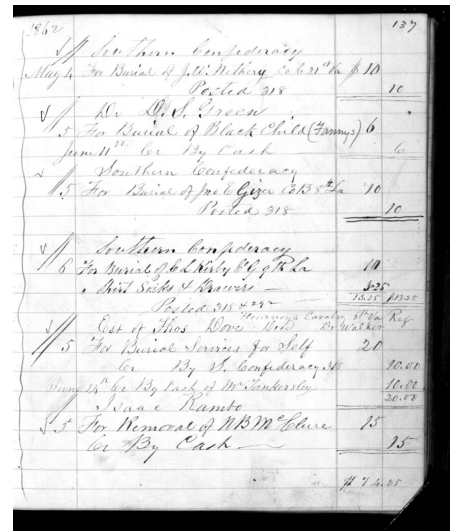 1862 137
Southern Confederacy
May 4 For Burial of J. W. Nethery Co C 21st Va $ 10
Posted 318 10
Dr D. S. Green
5 For Burial of Black Child (Fannys) 6
June 11st Cr By Cash 6
Southern Confederacy
5 For Burial of Joe E Gizer Co B 8th La 10
Posted 318 10
Southern Confederacy
6 For Burial of C L Kirby Co G 9 La 10
" Shirt Socks & Drawers 3.25
Posted 318 & 292 13.25 $13.25
Cavalry Va Reg
Est of Thos Dove Decd Dr Walker
5 For Burial Services for Self 20
Cr By S. Confederacy 318 10.00
June 14th Cr By Cash of Mc Tankersley 10.00
20.00
Isaac Rambo
5 For Removal of N B McClure 15
Cr By Cash 15
$ 74.25